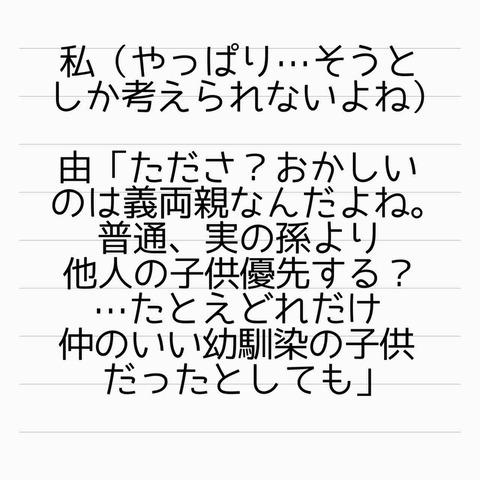 私（やっぱり…そうと
しか考えられないよね）
由「たださ？おかしい
のは義両親なんだよね。
普通、実の孫より
他人の子供優先する？
…たとえどれだけ
仲のいい幼馴染の子供
だったとしても」